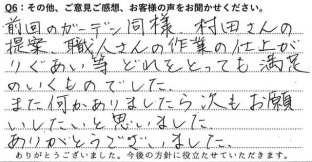 Q6：その他、ご意見ご感想、お客様の声をお聞かせください。
前回のガーデン同様、村田さんの
提案、職人さんの作業の仕上が
りぐあい等どれをとっても満足
のいくものでした。
また何かありましたら次もお願
いしたいと思いました。
ありがとうございました。
ありがとうございました。今後の方針に役立たせていただきます。